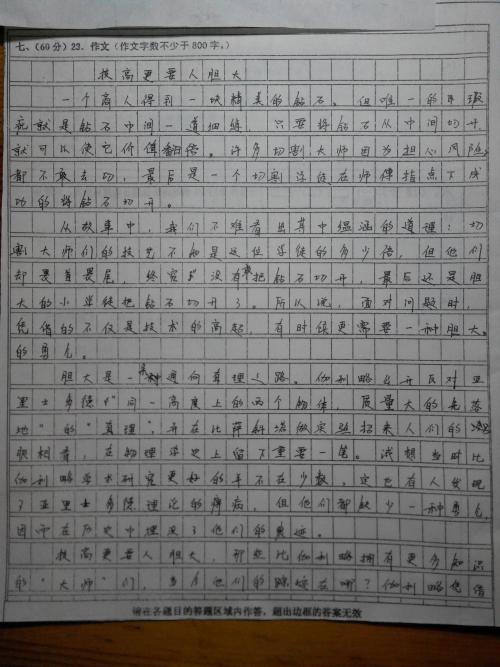 七、(60分)23. 作文(作文字数不少于800字。)
技高更要人胆大
一个商人得到一块精美的钻石。但唯一的瑕
疵就是钻石中间一道细缝，只要将钻石从中间切开，
就可以使它价值翻倍。许多切割大师因为担心风险，
都不敢去切，最后是一个切割学徒在师傅指点下成
功的将钻石切开。
从故事中，我们不难看出其中蕴涵的道理：切
割大师们的技艺不知是这位学徒的多少倍，但他们
却畏首畏尾，终究没有敢把钻石切开，最后还是胆
大的小学徒把钻石切开了。所以说，面对问题时，
凭借的不仅是技术的高超，有时候更需要一种胆大
的勇气。
胆大是一条通向真理之路。伽利略公开反对亚
里士多德"同一高度上的两个物体，质量大的先落
地"的"真理"，并在比萨斜塔做实验招来人们的
眼相看，在物理学史上留下重要一笔。试想当时比
伽利略学术研究更好的并不在少数，定也有人发现
了亚里士多德理论的弊病，但他们都缺少一种勇气，
因而在历史中埋没了他们的
技高更要人胆大，那些比伽利略拥有更多知识
的"大师"们，当今他们的踪迹在哪？伽利略凭借
请在各题目的答题区域内作答，超出边框的答案无效